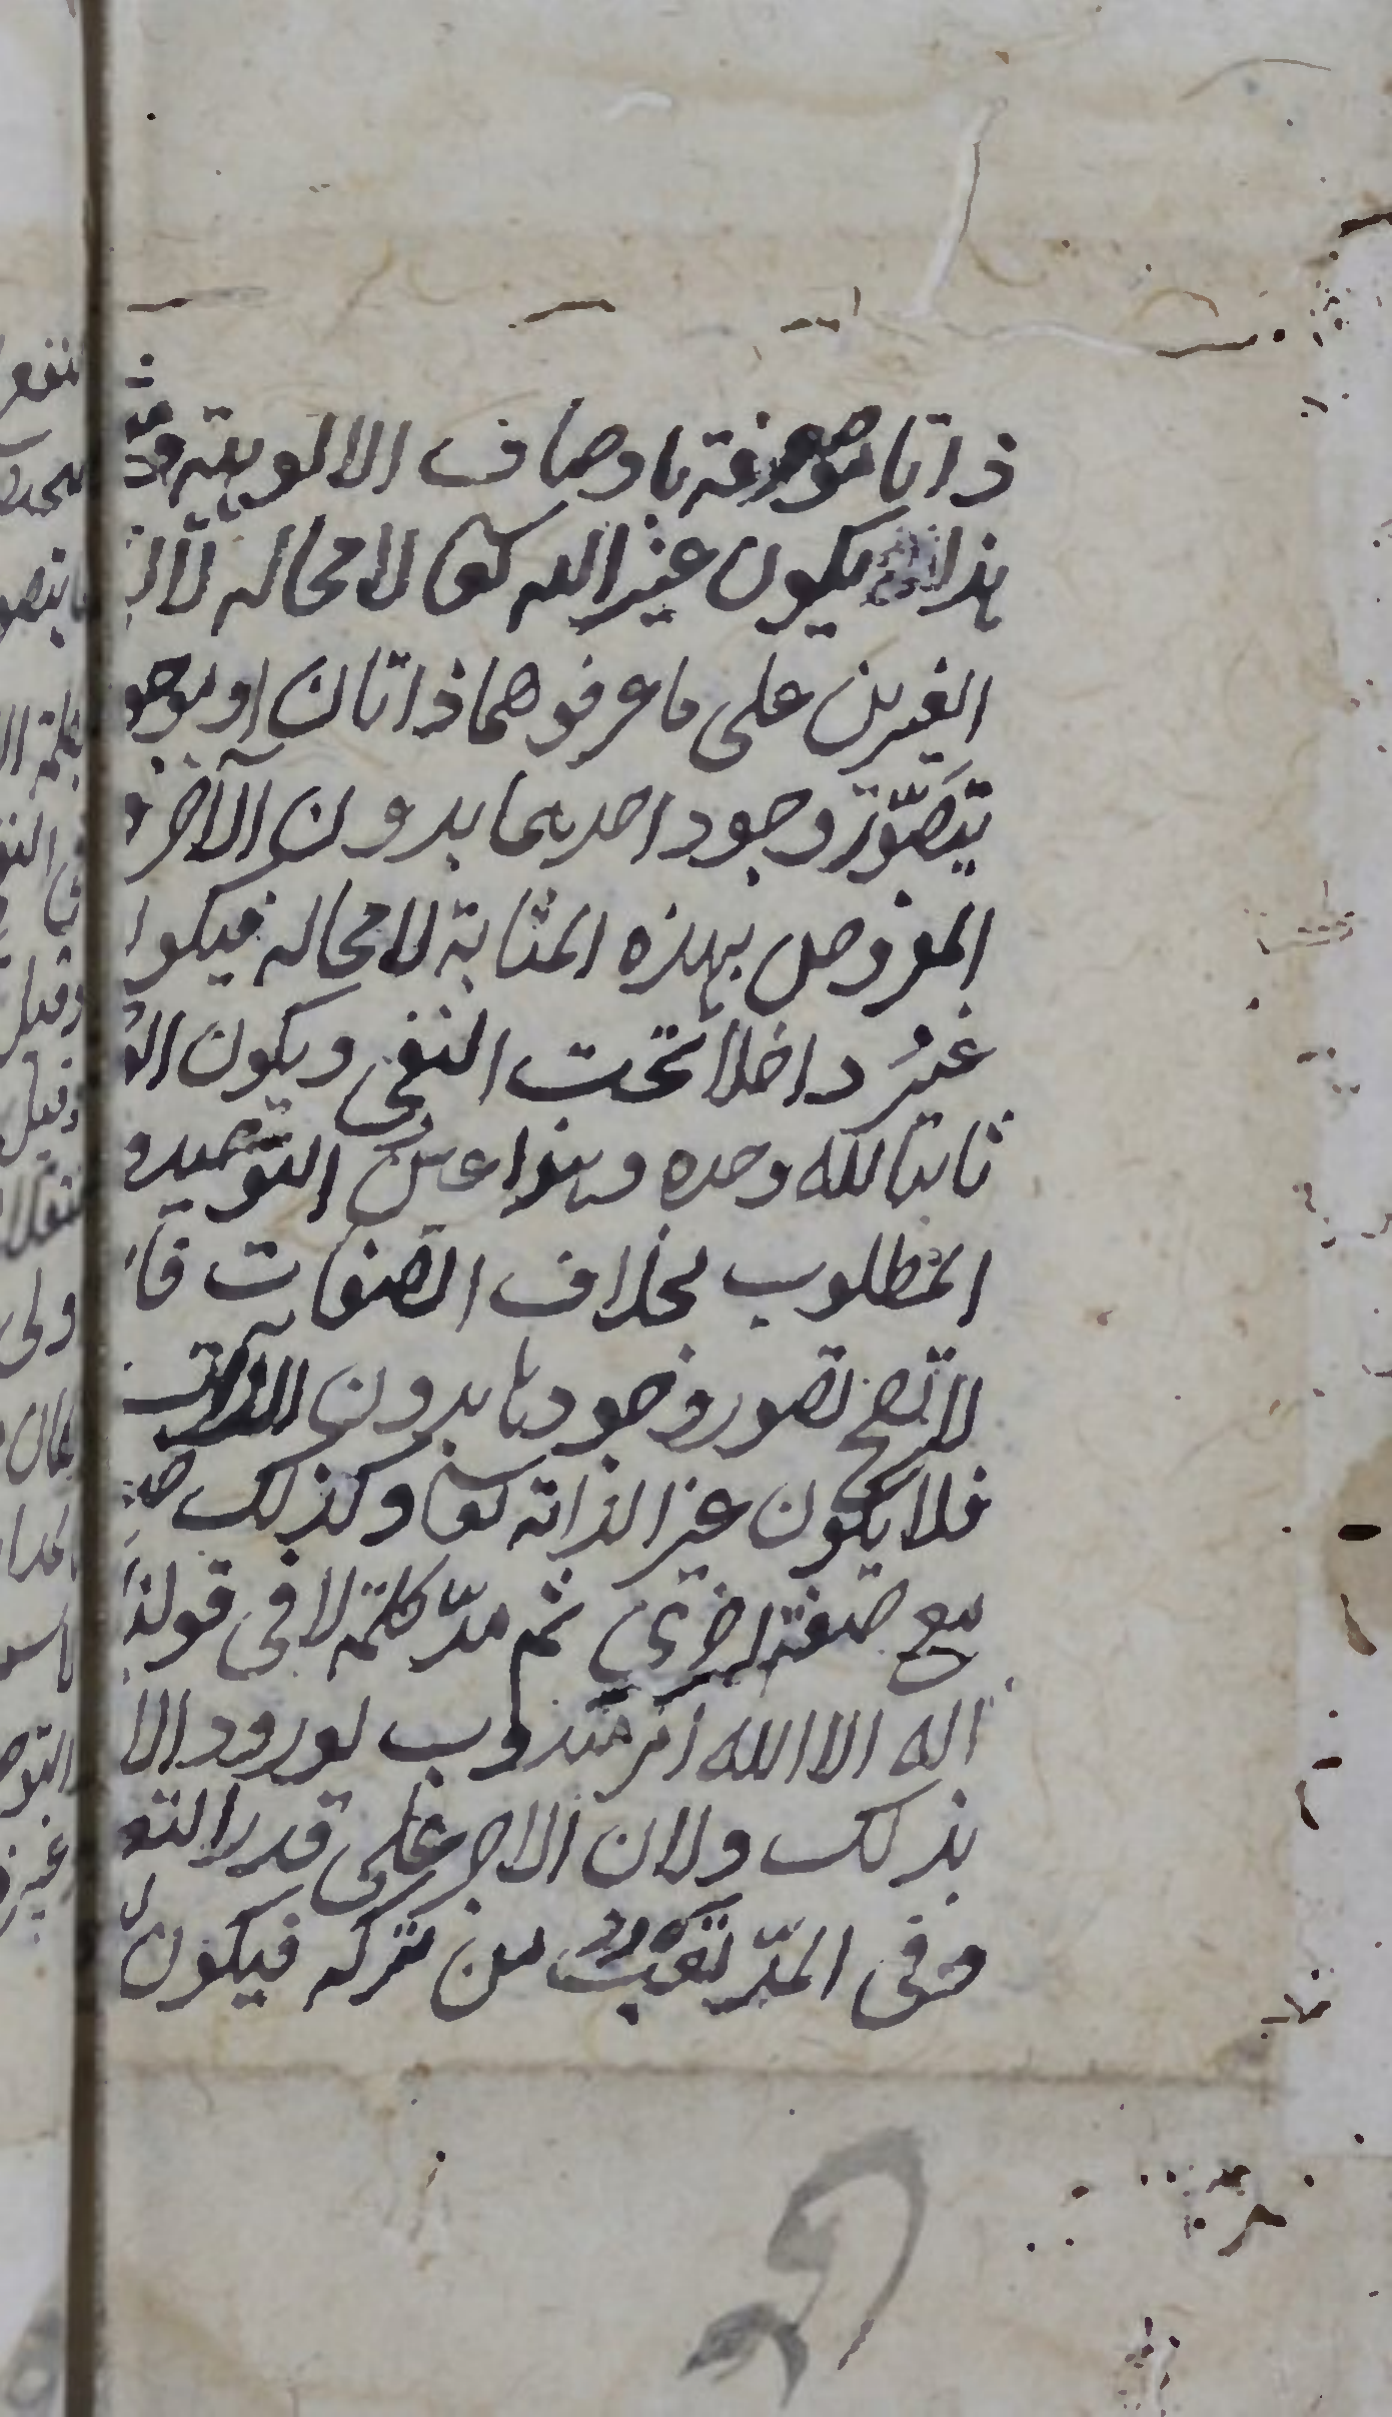 ذاتا موصوفة باوصاف الالوهيته
هذا يكون غير الله تعا لا محاله لان
الغيرين على ما عرفوهما ذاتان او موجو
يتصوّر وجود احدهما بدون الآخر و
المفروض بهذه المثابة لا محاله فيكو
غيرُ داخلا تحت النفى ويكون
ثابتا لله وحده وهذا عين التوحيد و
المطلوب بخلاف الصفات فا
لا تصح تصور وجودها بدون الذات
فلا يكون غير الذاته تعا وكذلك
مع صفة اخرى ثم مدّ كلمة لا فى قولنا
اله الا الله امر مندوب لورود الا
بذلك ولان الاجر على قدر التعـ
وفى المدّ تعب من تركه فيكون